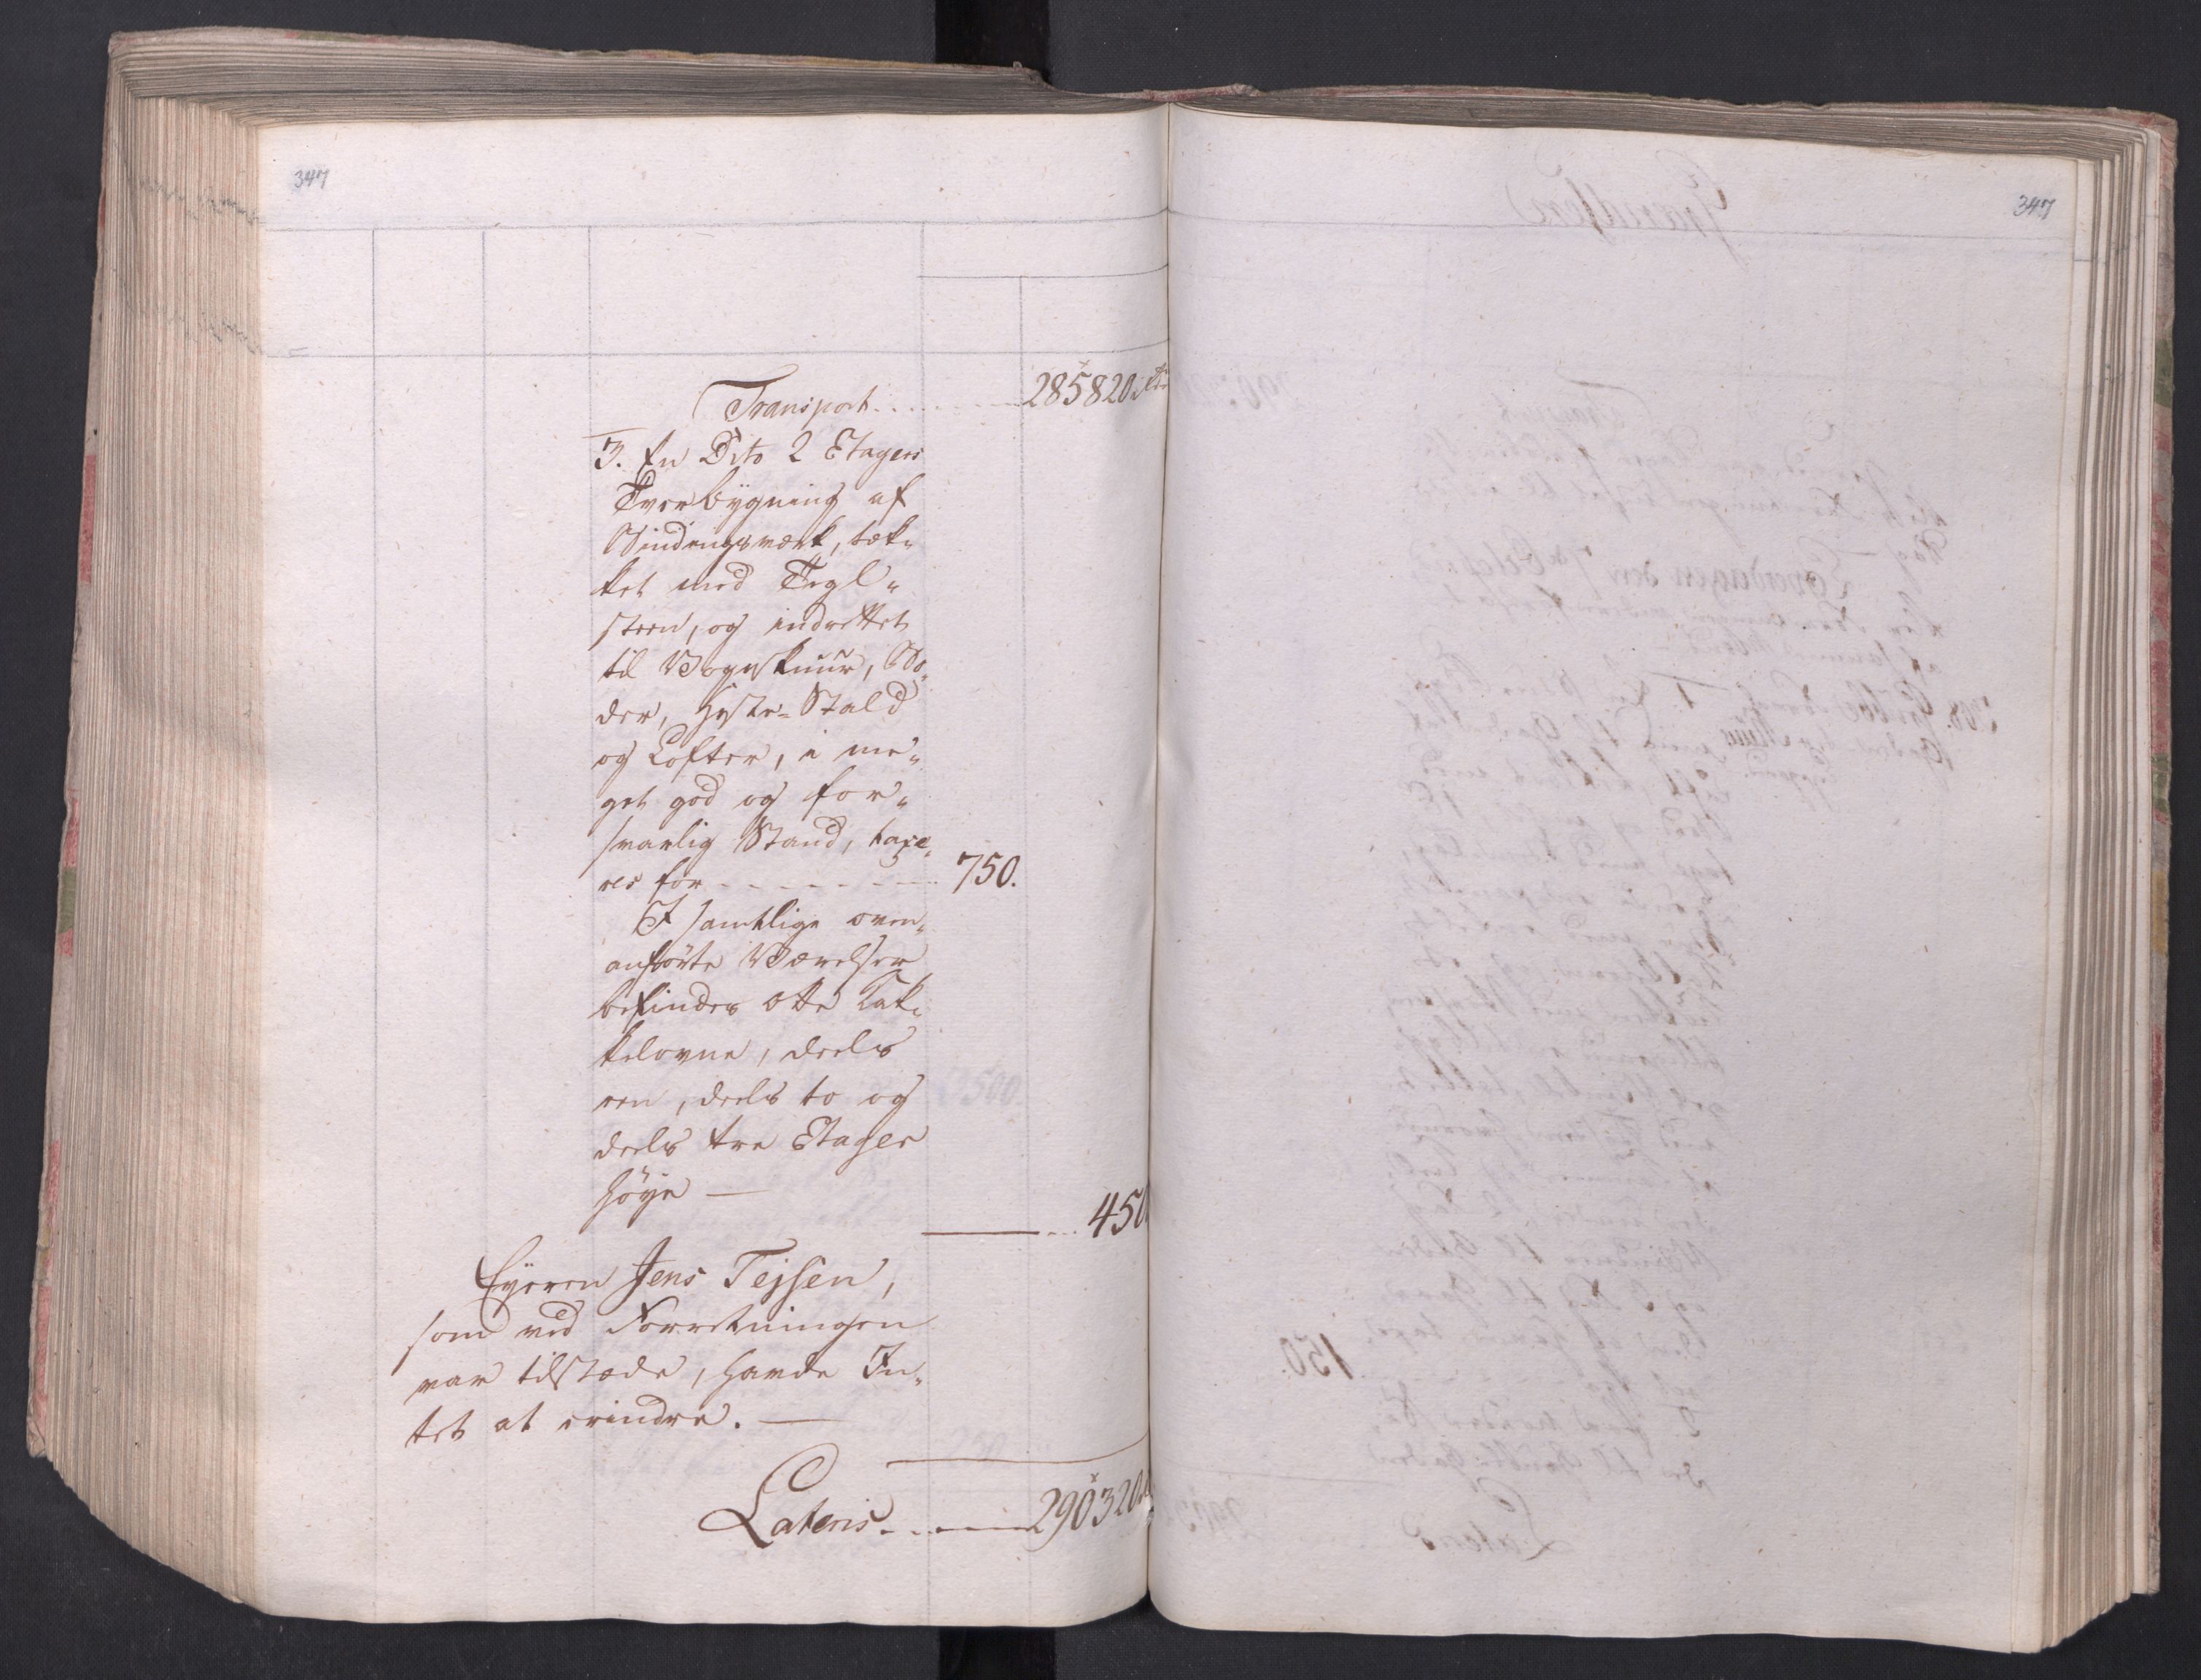 347
347
Transport . . . . . . . 285820 rdr
3. En Dito 2 Etagers
Tverbygning af
Bindingsværk, tæk„
ket med Tegl„
steen, og indrettet
til Vognskuur, Bo„
der, Heste-Stald
og Lofter, i me„
get god og for„
svarlig Stand, taxe„
res for - - - - - - - - 750.
I samtlige oven„
anførte Værelser
befindes otte Kak„
kelovne, deels
een, deels to og
deels tre Etager
høye —
. . 450
Eyeren Jens Tejsen,
som ved Forretningen
var tilstæde, havde In„
tet at erindre. —
Lateris . . . . . 290320